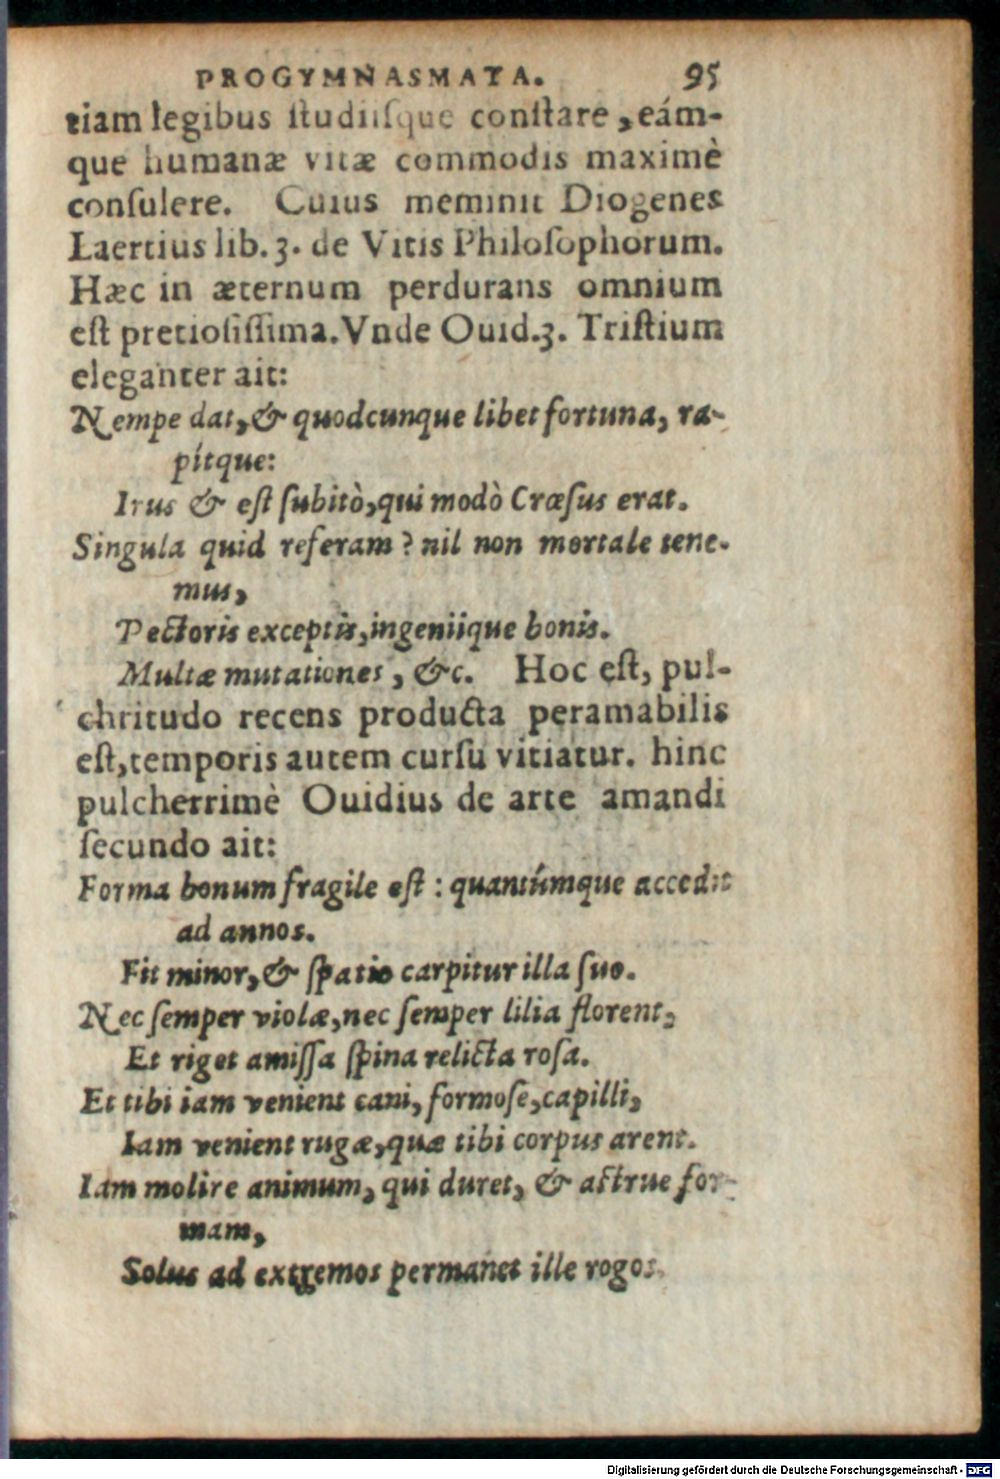 PROGYMNASMATA. 95
tiam legibus ſtudiiſque conſtare, eám-
que humanæ vitæ commodis maximè
conſulere. Cuius meminit Diogenes
Laertius lib. 3. de Vitis Philoſophorum.
Hæc in æternum perdurans omnium
eſt pretioſiſſima. Vnde Ouid. 3. Triſtium
eleganter ait:
Nempe dat, & quodcunque libet fortuna, ra-
pítque:
Irus & eſt ſubitò, qui modò Crœſus erat.
Singula quid referam? nil non mortale tene-
mus,
Pectoris exceptis, ingeniique bonis.
Multæ mutationes, &c. Hoc eſt, pul-
chritudo recens producta peramabilis
eſt, temporis autem curſu vitiatur. hinc
pulcherrimè Ouidius de arte amandi
ſecundo ait:
Forma bonum fragile eſt: quantúmque accedit
ad annos.
Fit minor, & ſpatio carpitur illa ſuo.
Nec ſemper violæ, nec ſemper lilia florent,
Et riget amiſſa ſpina relicta roſa.
Et tibi iam venient cani, formoſe, capilli,
Iam venient rugæ, quæ tibi corpus arent.
Iam molire animum, qui duret, & aſtrue for-
mam,
Solus ad extremos permanet ille rogos.
Digitalisierung gefördert durch die Deutsche Forschungsgemeinschaft - DFG